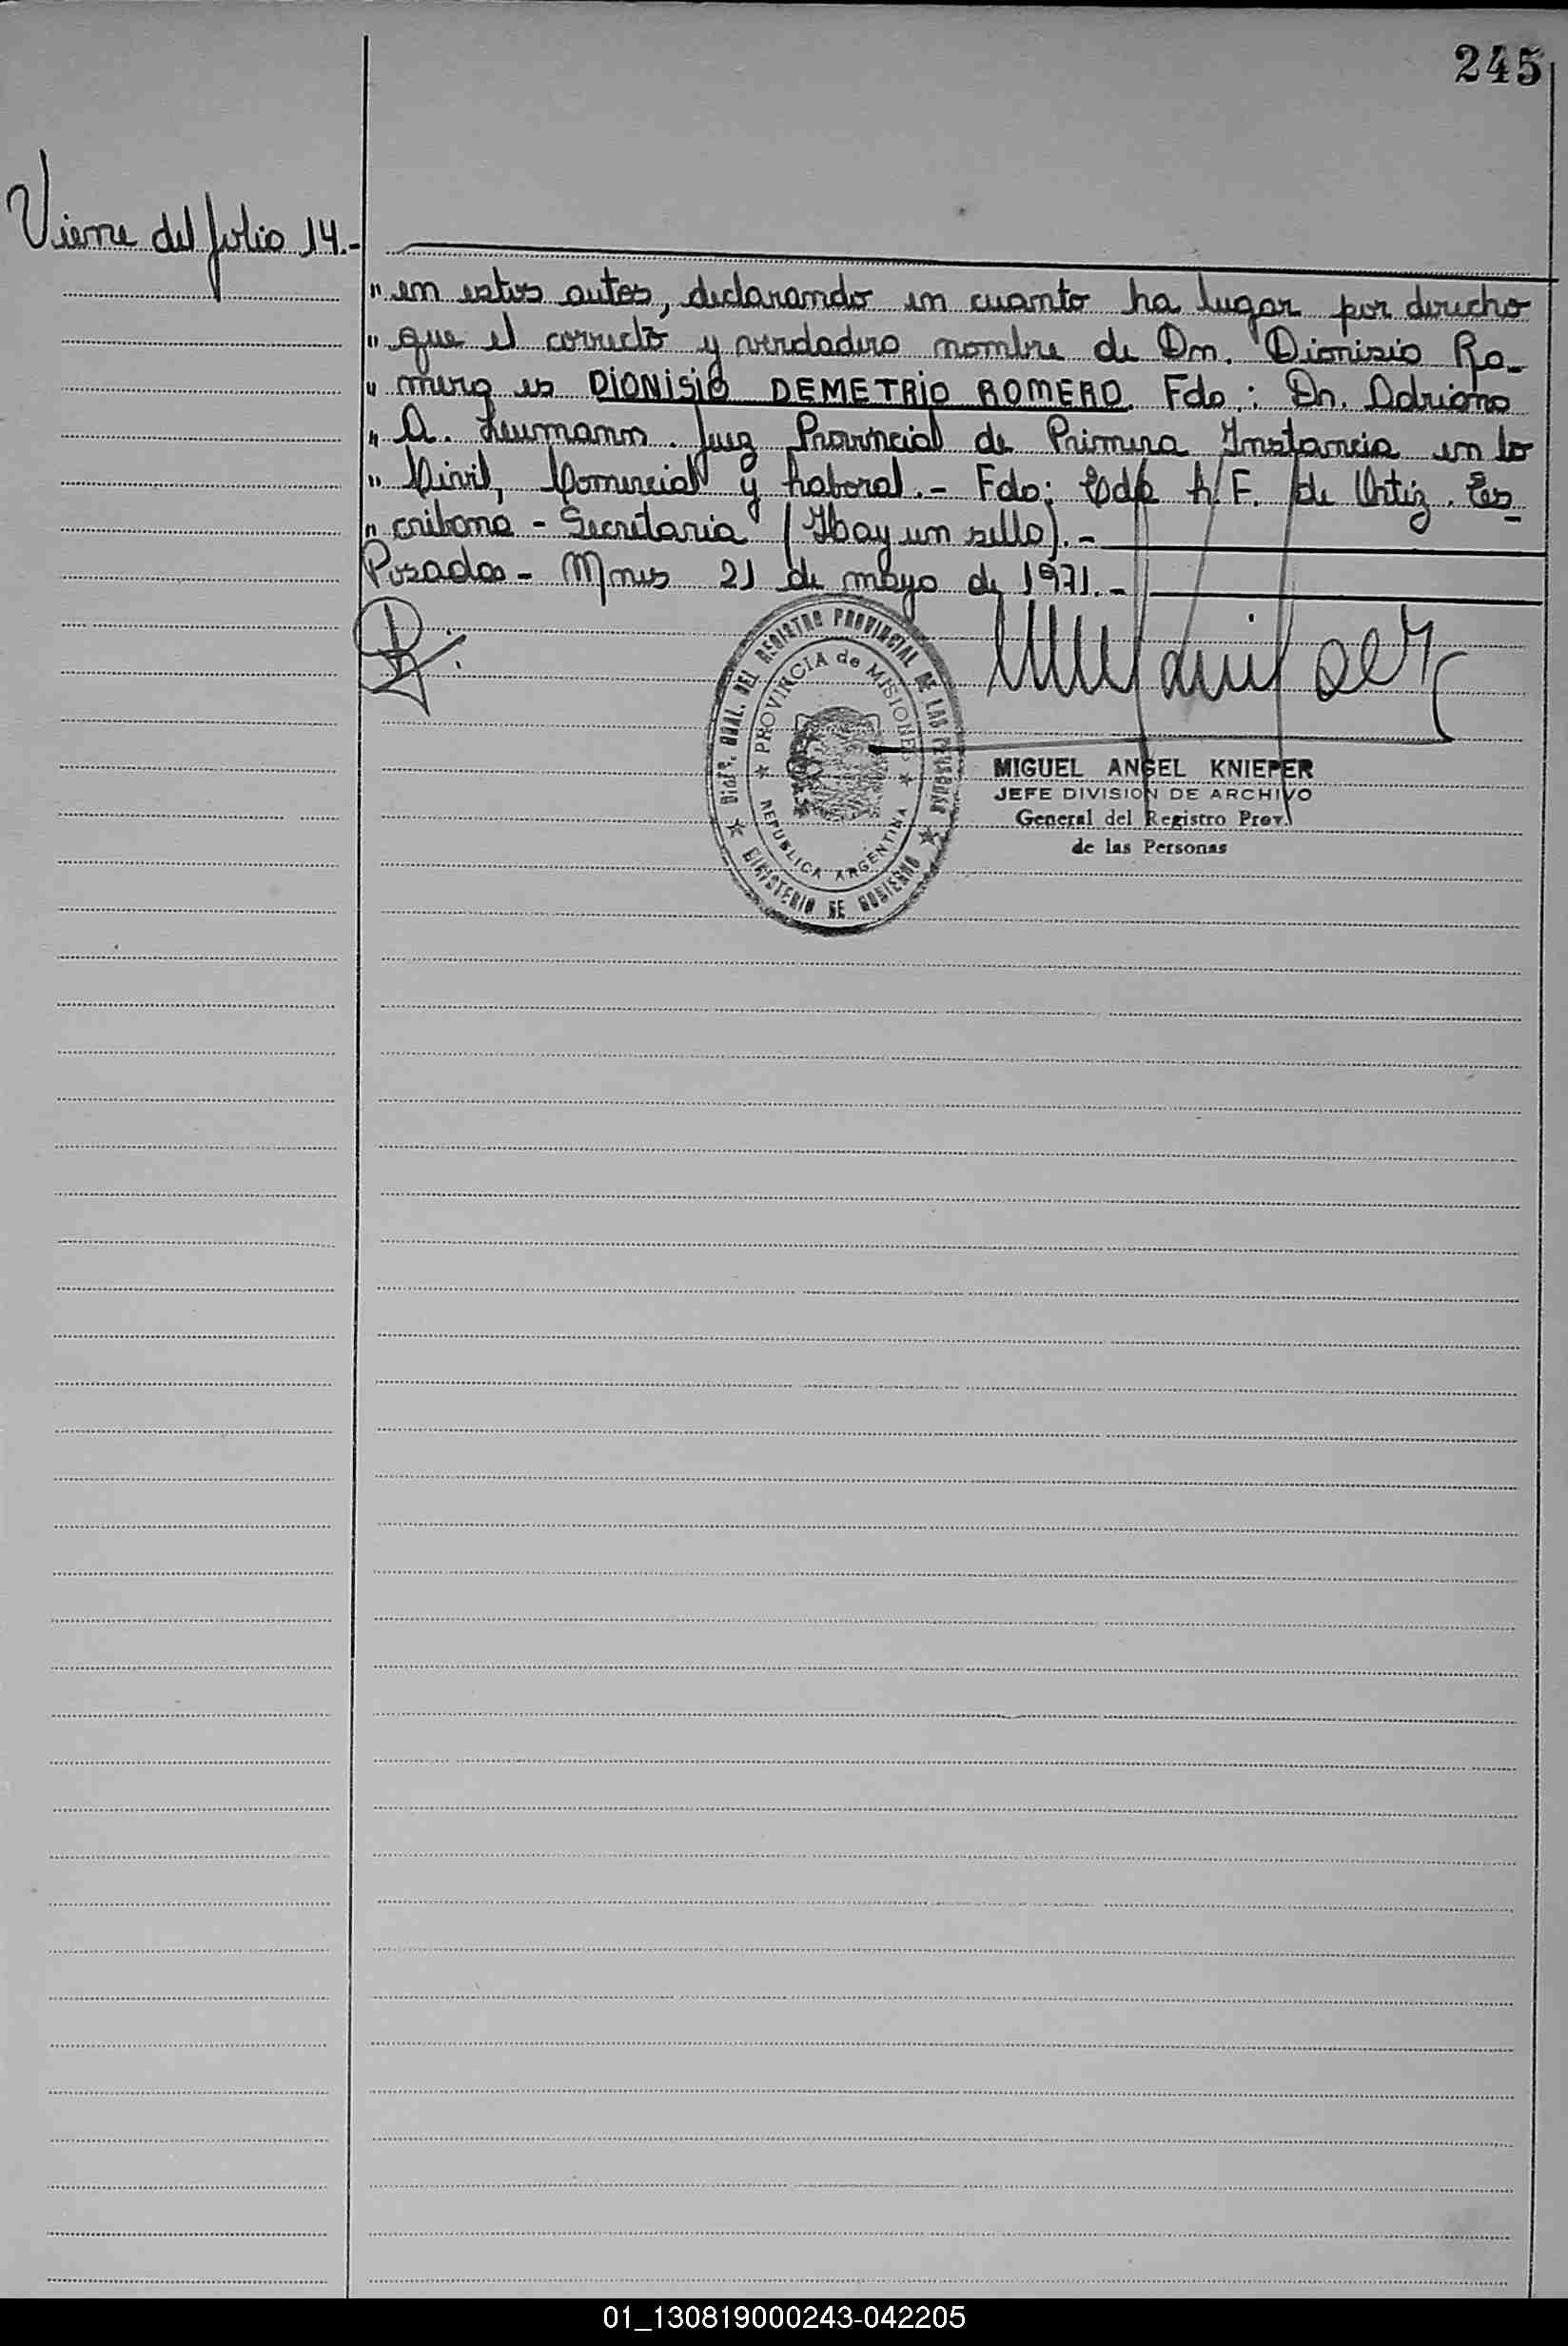 245
Viene del folio 14.-
" en estos autos, declarando en cuanto ha lugar por derecho
" que el correcto y verdadero nombre de Dn. Dionisio Ro-
" mero es DIONISIO DEMETRIO ROMERO. Fdo.: Dr. Adriano
" A. Leumann. Juez Provincial de Primera Instancia en lo
" Civil, Comercial y Laboral.- Fdo: L. F. de Ortiz. Es-
" cribana - Secretaria (Hay un sello).-
Posadas - Mnes 21 de mayo de 1971.-
DIREC. GRAL. DEL REGISTRO PROVINCIAL DE LAS PERSONAS
PROVINCIA de MISIONES
REPUBLICA ARGENTINA
MINISTERIO DE GOBIERNO
MIGUEL ANGEL KNIEPER
JEFE DIVISION DE ARCHIVO
General del Registro Prov.
de las Personas
01_130819000243-042205